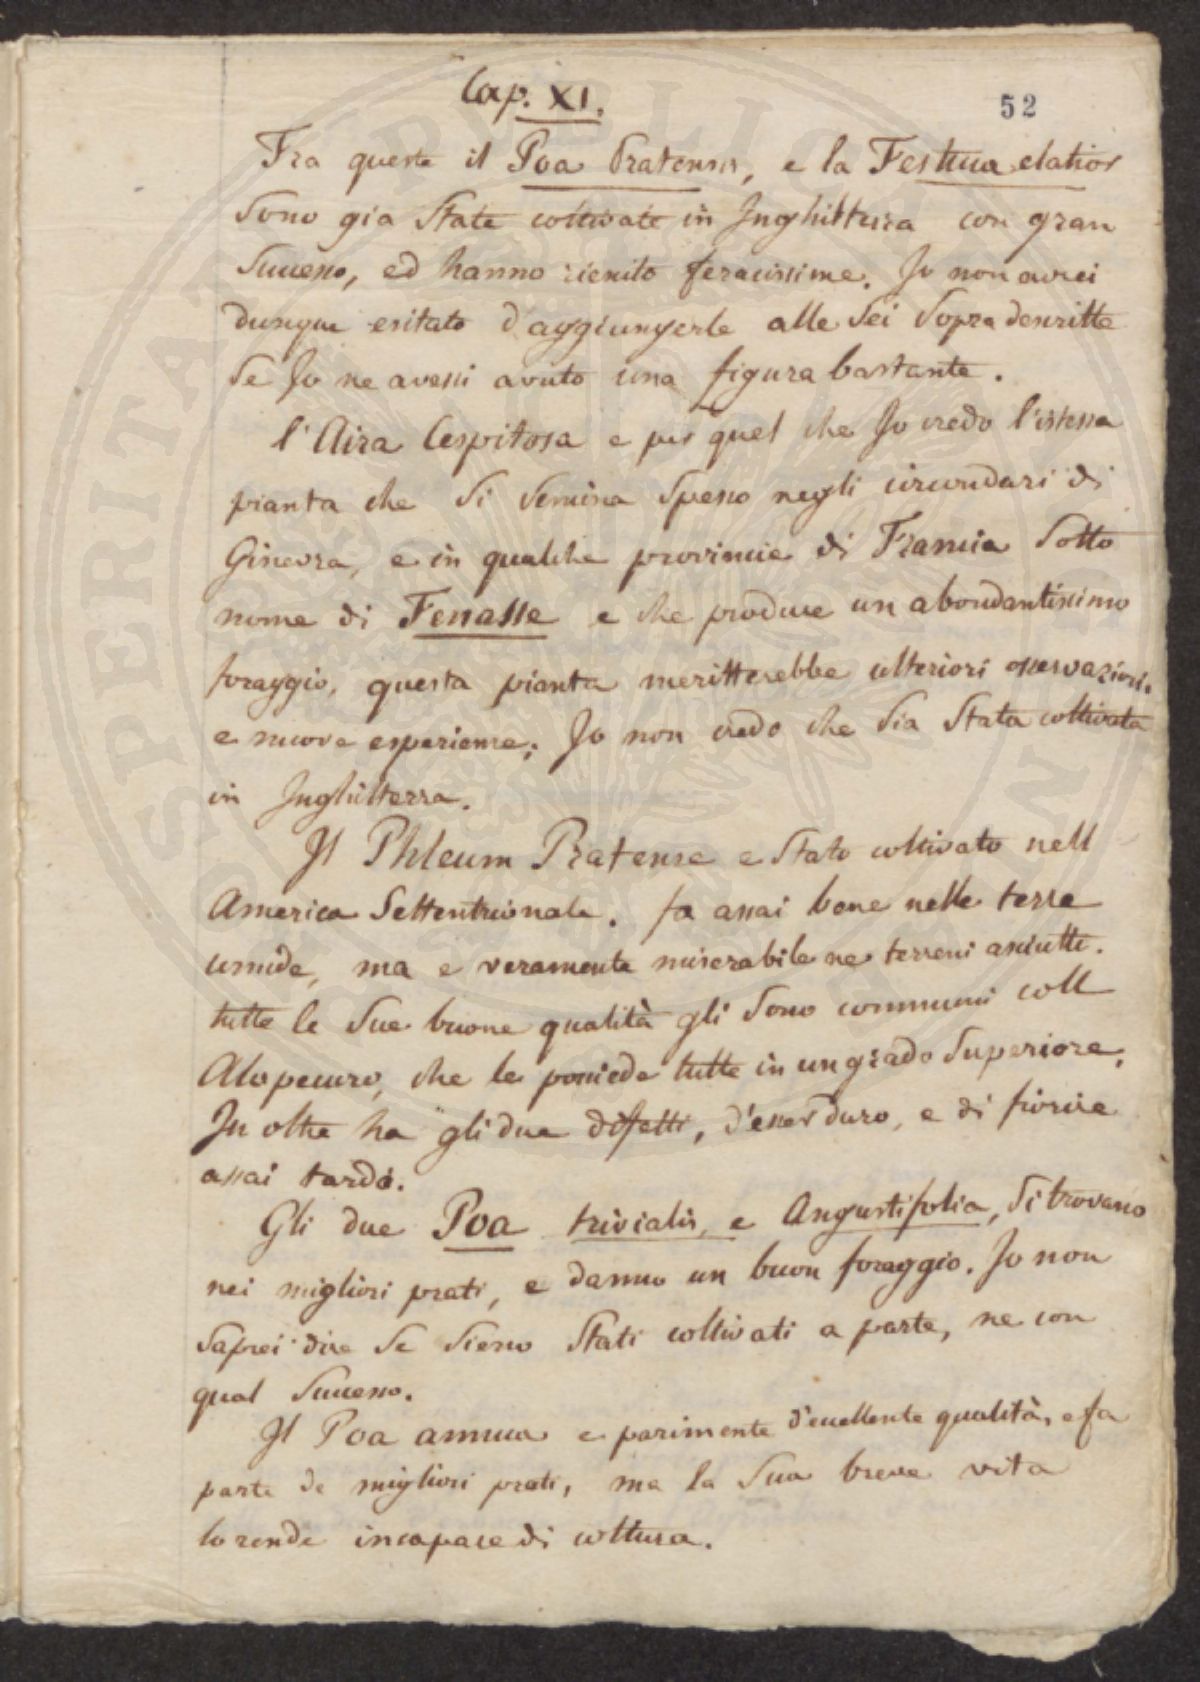 Cap. XI.
52
Fra queste il Poa Pratensis, e la Festuca elatior
Sono gia State coltivate in Inghilterra con gran
Successo, ed hanno riesito feracissime. Io non avrei
dunque esitato d'aggiungerle alle Sei Sopra descritte
Se Io ne avessi avuto una figura bastante.
l'Aira Cespitosa e per quel che Io credo l'istessa
pianta che Si Semina Spesso negli circondari di
Ginevra, e in qualche provincie di Francia Sotto
nome di Fenasse e che produce un abondantissimo
foraggio, questa pianta meritterebbe ulteriori osservazioni.
e nuove esperienze; Io non credo che Sia Stata coltivata
in Inghilterra.
Il Phleum Pratense e Stato coltivato nell
America Settentrionale. fa assai bene nelle terre
umide, ma e veramente miserabile ne terreni asciutti.
tutte le Sue buone qualità gli Sono communi coll
Alopecuro, che le possiede tutte in un grado Superiore.
In oltre ha gli due difetti, d'esser duro, e di fiorire
assai tardi.
Gli due Poa trivialis, e Angustifolia, Si trovano
nei migliori prati, e danno un buon foraggio. Io non
Saprei dire Se Sieno Stati coltivati a parte, ne con
qual Successo.
Il Poa annua e parimente d'eccellente qualità, e fa
parte de migliori prati, ma la Sua breve vita
lo rende incapace di coltura.